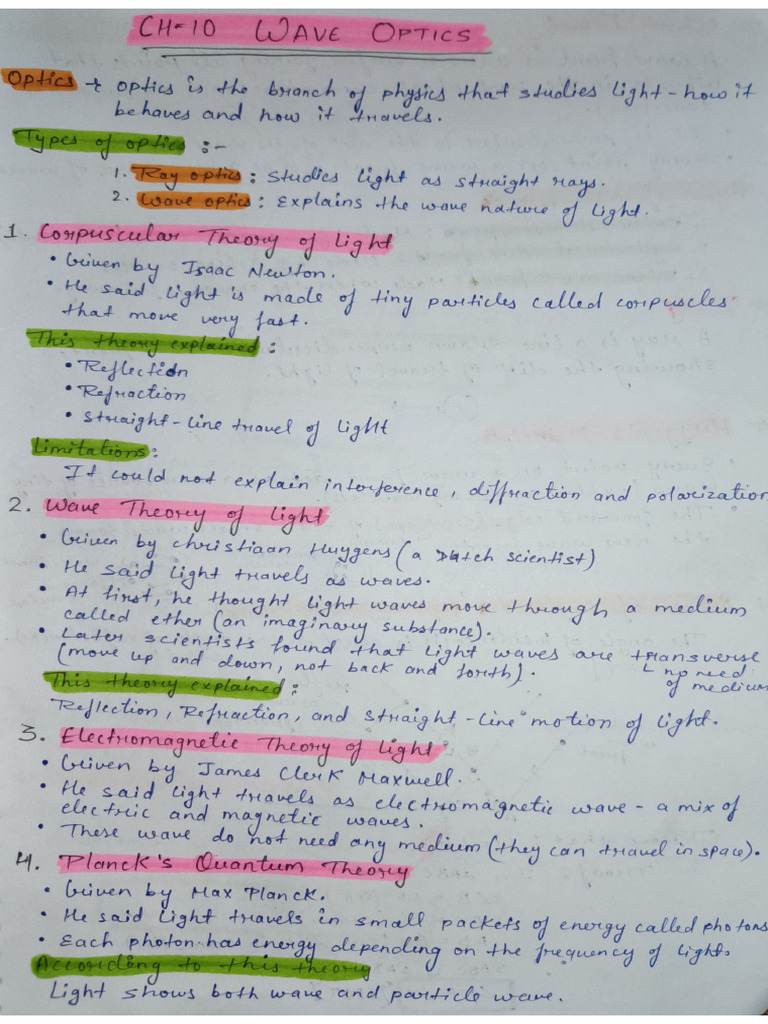 CH-10 WAVE OPTICS
Optics → Optics is the branch of physics that studies light - how it
behaves and how it travels.
Types of optics :-
1. Ray optics : Studies light as straight rays.
2. Wave optics : Explains the wave nature of light.
1. Corpuscular Theory of Light
• Given by Isaac Newton.
• He said light is made of tiny particles called corpuscles
that move very fast.
This theory explained :
• Reflection
• Refraction
• Straight-line travel of light
Limitations :
It could not explain interference, diffraction and polarization
2. Wave Theory of Light
• Given by Christiaan Huygens (a Dutch scientist)
• He said light travels as waves.
• At first, he thought light waves move through a medium
called ether (an imaginary substance).
• Later scientists found that light waves are transverse
(move up and down, not back and forth). ↳ no need
of medium
This theory explained :
Reflection, Refraction, and straight-line motion of light.
3. Electromagnetic Theory of Light
• Given by James Clerk Maxwell.
• He said light travels as electromagnetic wave - a mix of
electric and magnetic waves.
• These wave do not need any medium (they can travel in space).
4. Planck's Quantum Theory
• Given by Max Planck.
• He said light travels in small packets of energy called photons
• Each photon has energy depending on the frequency of light.
According to this theory
Light shows both wave and particle wave.